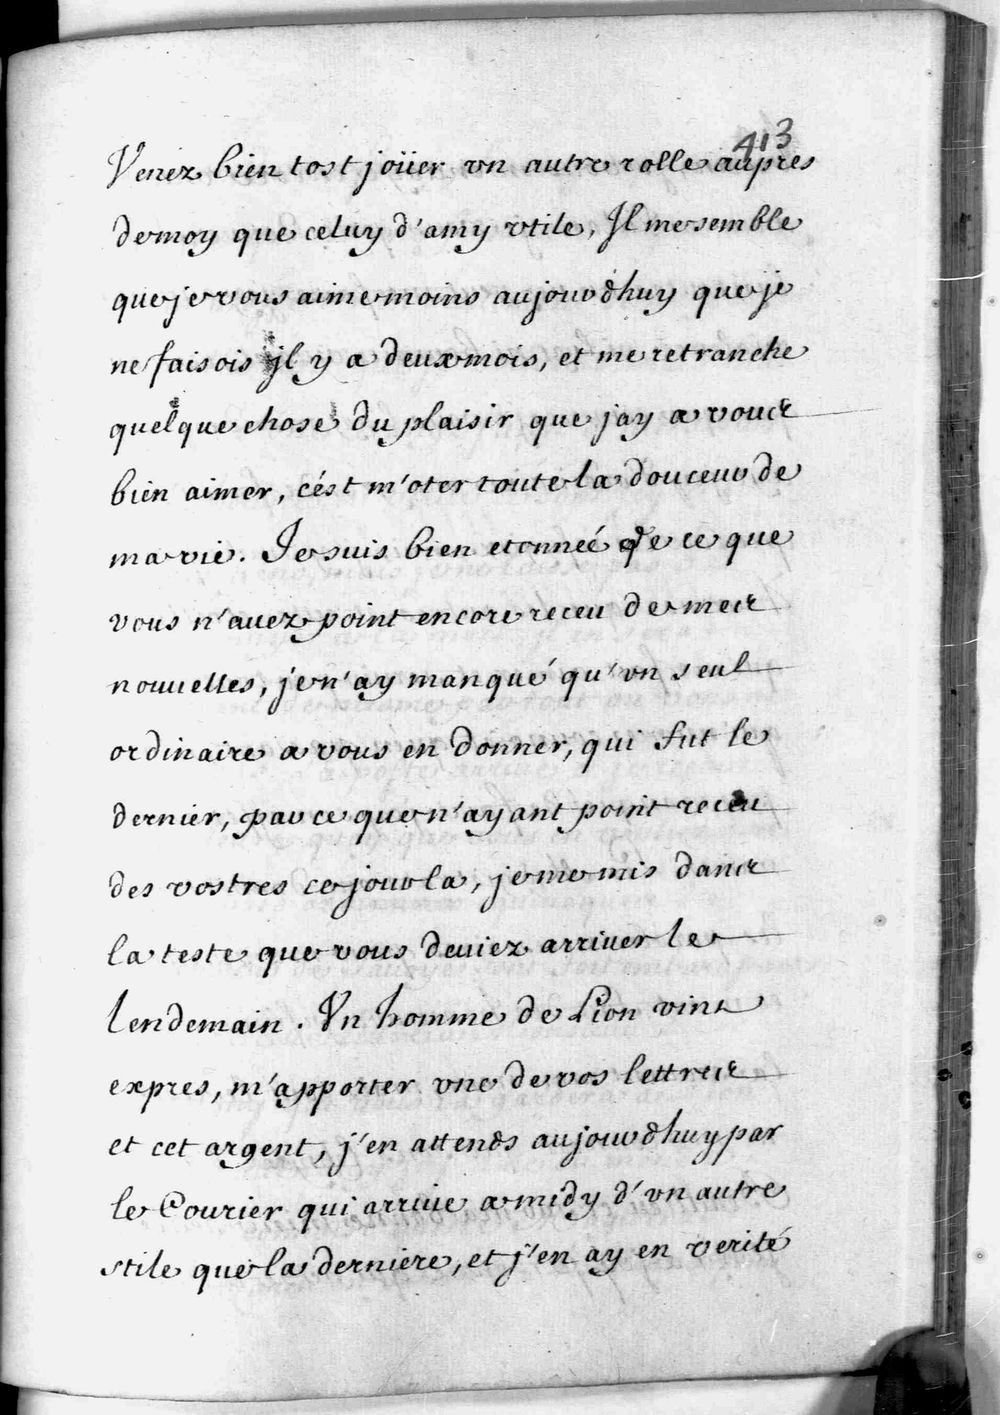 413
Venez bien tost joüer vn autre rolle aupres
de moy que celuy d'amy vtile, Il me semble
que je vous aime moins aujourdhuy que je
ne faisois jl y a deux mois, et me retranche
quelque chose du plaisir que jay a vous
bien aimer, cést m'oter toute la douceur de
ma vie. Je suis bien etonneé de ce que
vous n'auez point encore receu de mes
nouuelles, je n'ay manqué qu'vn seul
ordinaire a vous en donner, qui fut le
dernier, parce que n'ayant point receu
des vostres ce jour la, je me mis dans
la teste que vous deuiez arriuer le
lendemain. Vn homme de Lion vint
expres, m'apporter vne de vos lettres
et cet argent, j'en attends aujourdhuy par
le Courier qui arriue a midy d'vn autre
stile que la derniere, et j'en ay en verité